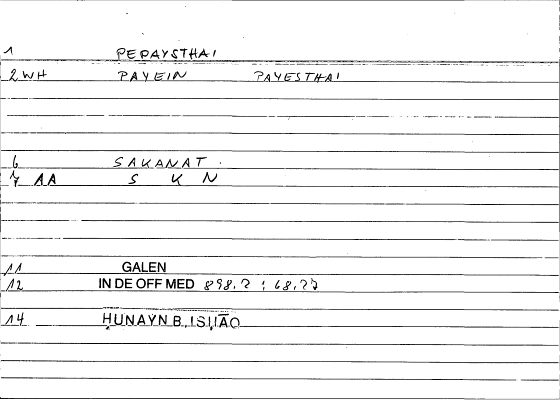 1 PEPAYSTHAI
2 WH PAYEIN PAYESTHAI
6 SAKANAT.
7 AA S K N
11 GALEN
12 IN DE OFF MED 898.2 ; 68.27
14 ḤUNAYN B. ISḤĀQ